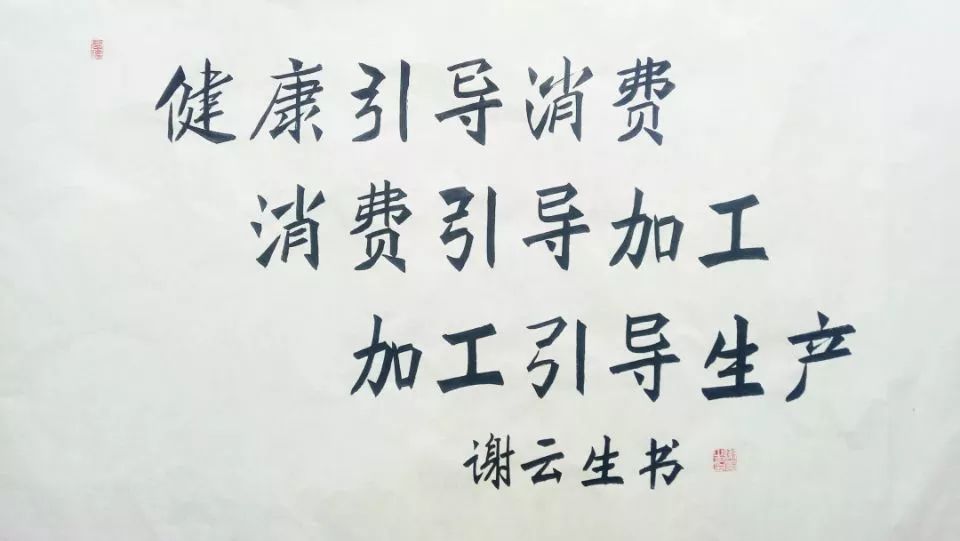 健康引导消费
消费引导加工
加工引导生产
谢云生书